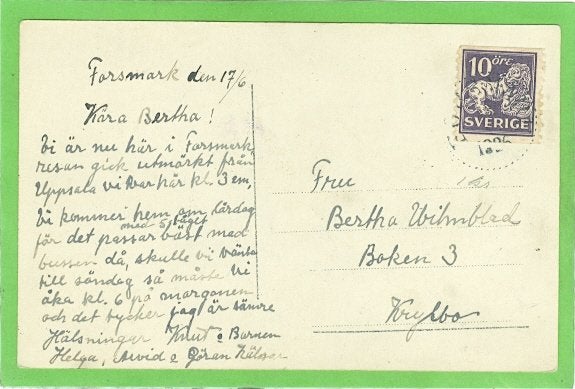 Forsmark den 17/6
Kära Bertha!
Vi är nu här i Forsmark,
resan gick utmärkt från
Uppsala vi var här kl. 3 em,
Vi kommer hem om lördag
med 5 tåget
för det passar bäst med
bussen då, skulle vi vänta
till söndag så måste vi
åka kl. 6 på morgonen
och det tycker jag är sämre
Hälsningar Knut o Barnen
Helga, Arvid o Göran Hälsar
10 ÖRE
SVERIGE
Fru
Bertha Wilmblad
Boken 3
Krylbo